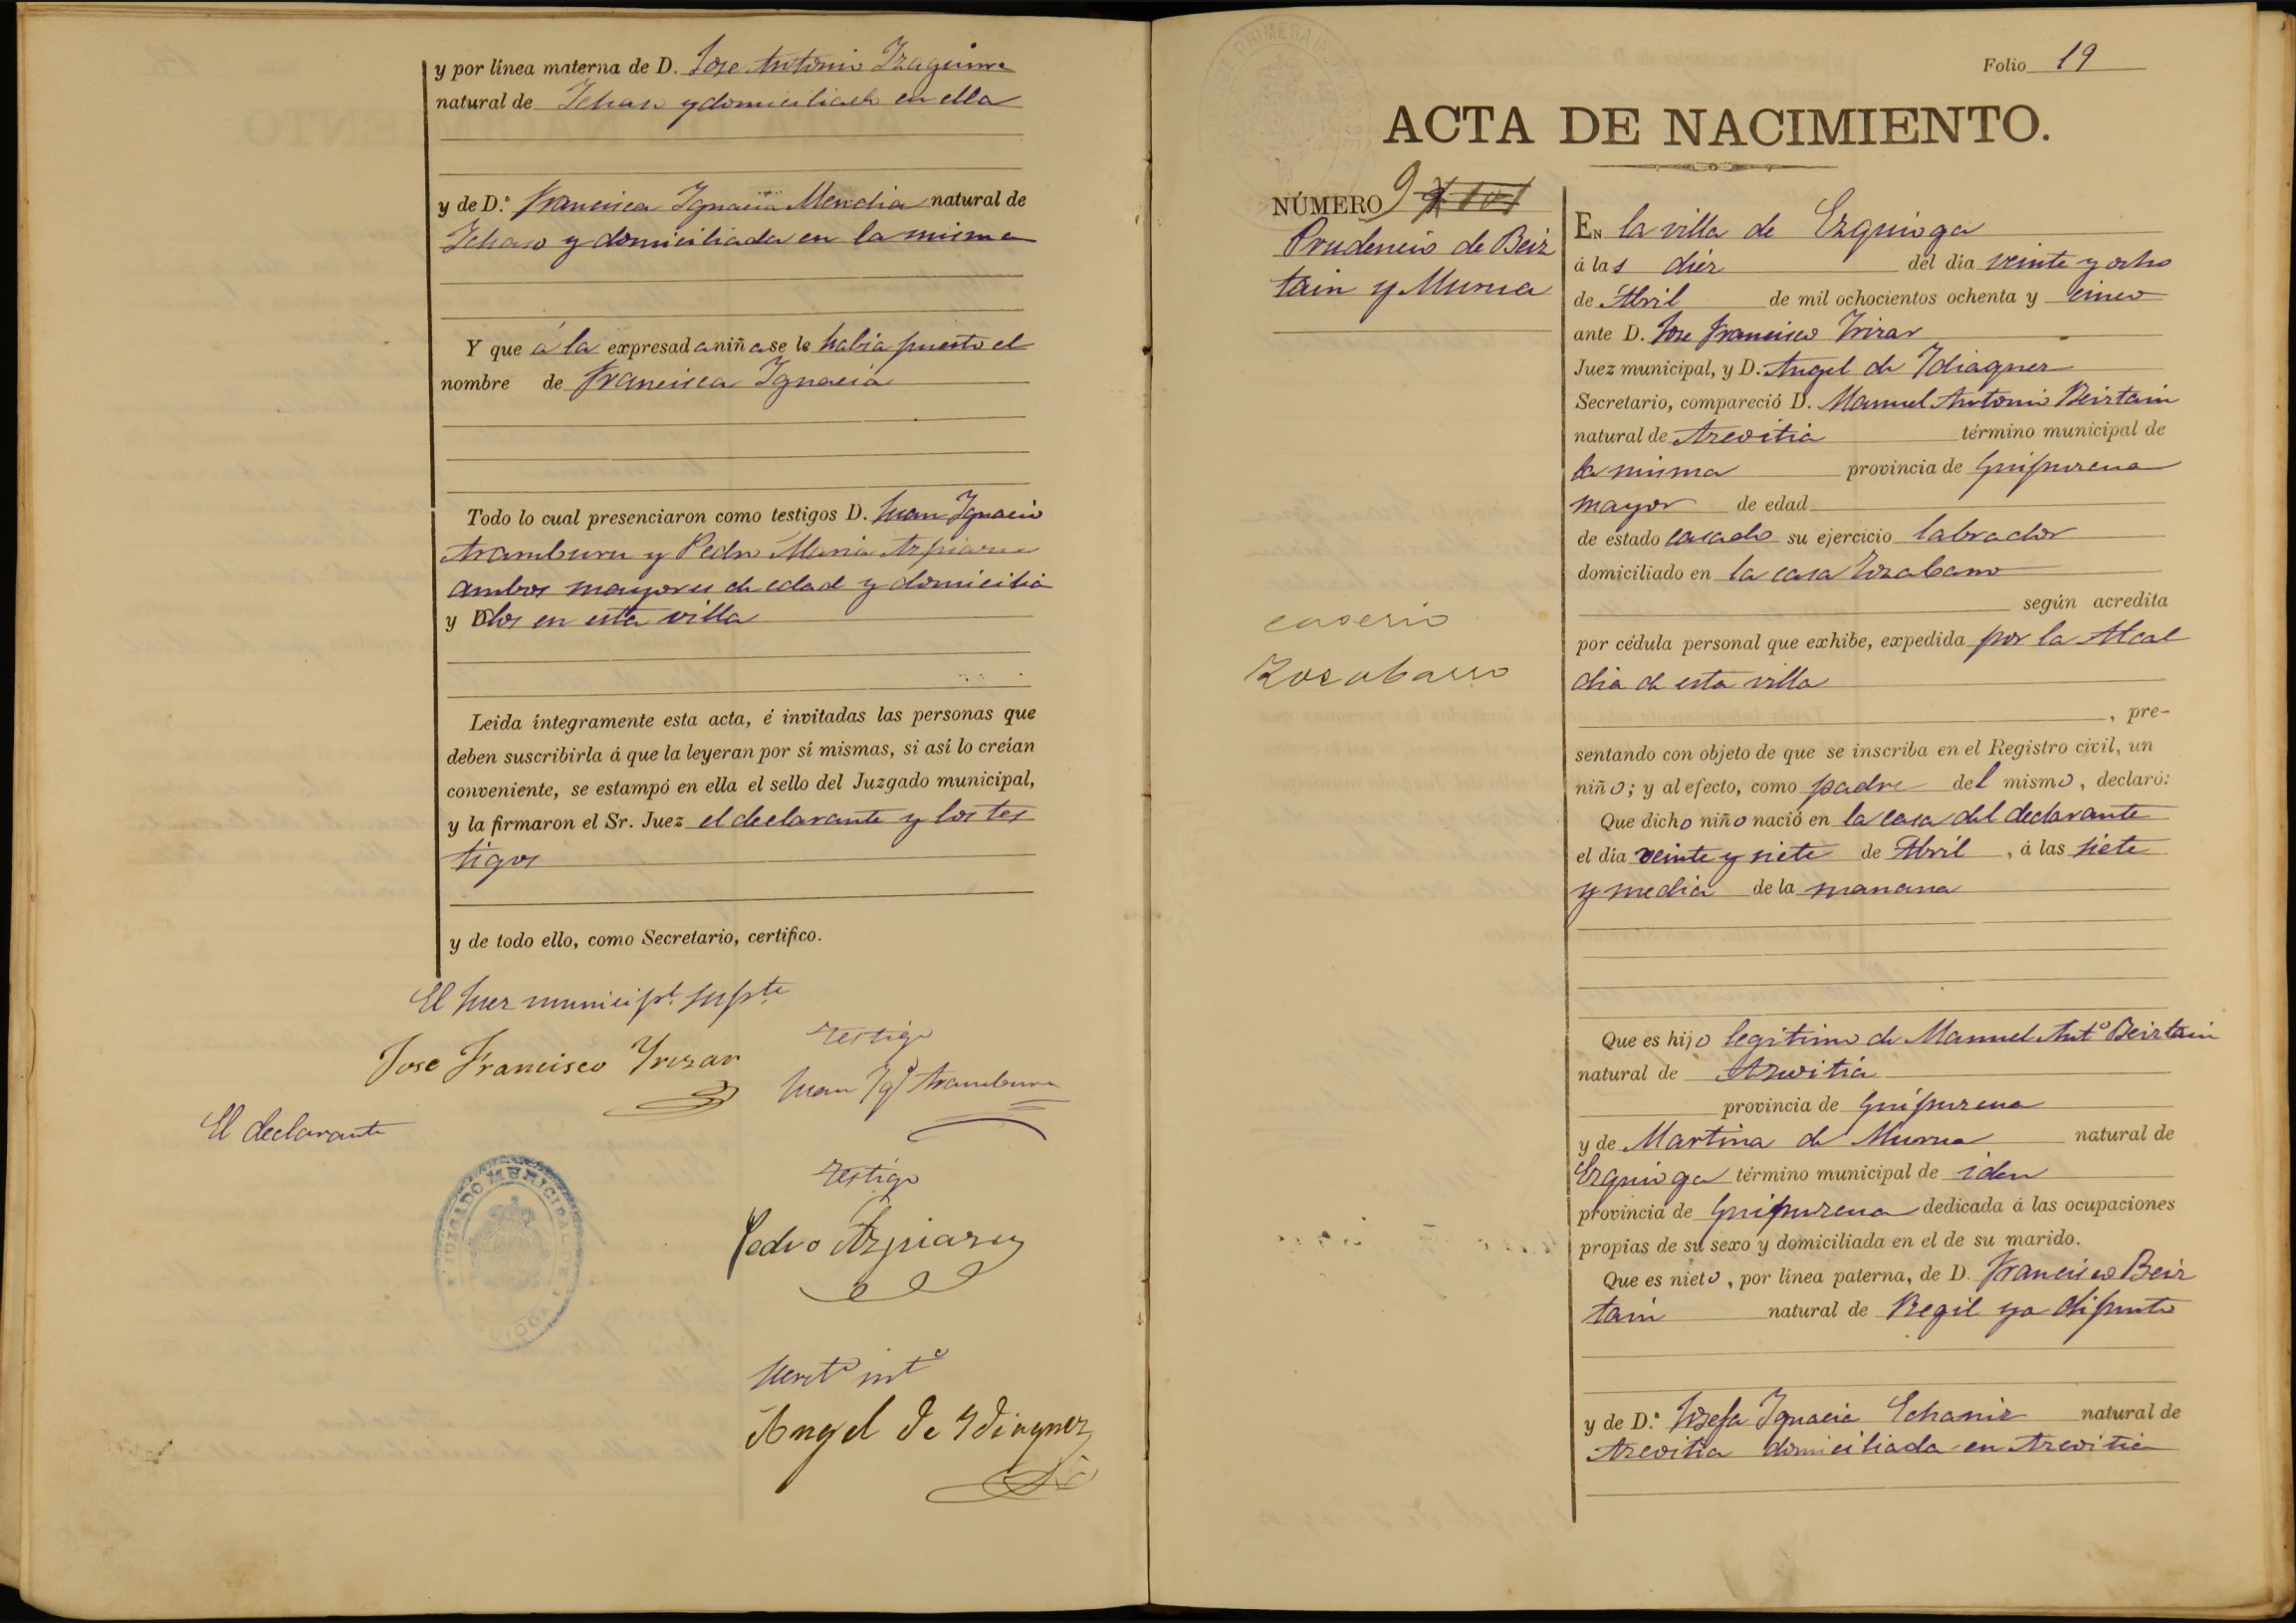 y por línea materna de D. Jose Antonio Izaguirre
natural de Ichaso y domiciliado en ella
y de D.ª Francisca Ignacia Mendia natural de
Ichaso y domiciliada en la misma
Y que á la expresada niña se le habia puesto el
nombre de Francisca Ignacia
Todo lo cual presenciaron como testigos D. Juan Ignacio
Aramburu y Pedro Maria Azpiazu
ambos mayores de edad y domicilia
y D dos en esta villa
Leida íntegramente esta acta, é invitadas las personas que
deben suscribirla á que la leyeran por sí mismas, si así lo creían
conveniente, se estampó en ella el sello del Juzgado municipal,
y la firmaron el Sr. Juez el declarante y los tes
tigos
y de todo ello, como Secretario, certifico.
El Juez municipl. supte
Jose Francisco Yrizar
testigo
Juan Igº Aramburu
El declarante
JUZGADO MUNICIPAL DE
testigo
Pedro Azpiazu
Secretº intº
Angel de Ydiaquez
Folio 19
ACTA DE NACIMIENTO.
NÚMERO 9
Prudencio de Beiz
tain y Murua
caserio
Zozabarro
EN la villa de Ezquioga
á las diez del día veinte y ocho
de Abril de mil ochocientos ochenta y cinco
ante D. Jose Francisco Irizar
Juez municipal, y D. Angel de Idiaquez
Secretario, compareció D. Manuel Antonio Beiztain
natural de Azcoitia término municipal de
la misma provincia de Guipuzcua
mayor de edad
de estado casado su ejercicio labrador
domiciliado en la casa Zozabarro
según acredita
por cédula personal que exhibe, expedida por la Alcal
dia de esta villa
, pre-
sentando con objeto de que se inscriba en el Registro civil, un
niño; y al efecto, como padre del mismo, declaró:
Que dicho niño nació en la casa del declarante
el día veinte y siete de Abril, á las siete
y media de la manana
Que es hijo legitimo de Manuel Antº Beiztain
natural de Azcoitia
provincia de Guipuzcua
y de Martina de Murua natural de
Ezquioga término municipal de iden
provincia de Guipuzcua dedicada á las ocupaciones
propias de su sexo y domiciliada en el de su marido.
Que es nieto, por línea paterna, de D. Francisco Beiz
tain natural de Regil ya difunto
y de D.ª Josefa Ignacia Echaniz natural de
Azcoitia domiciliada en Azcoitia